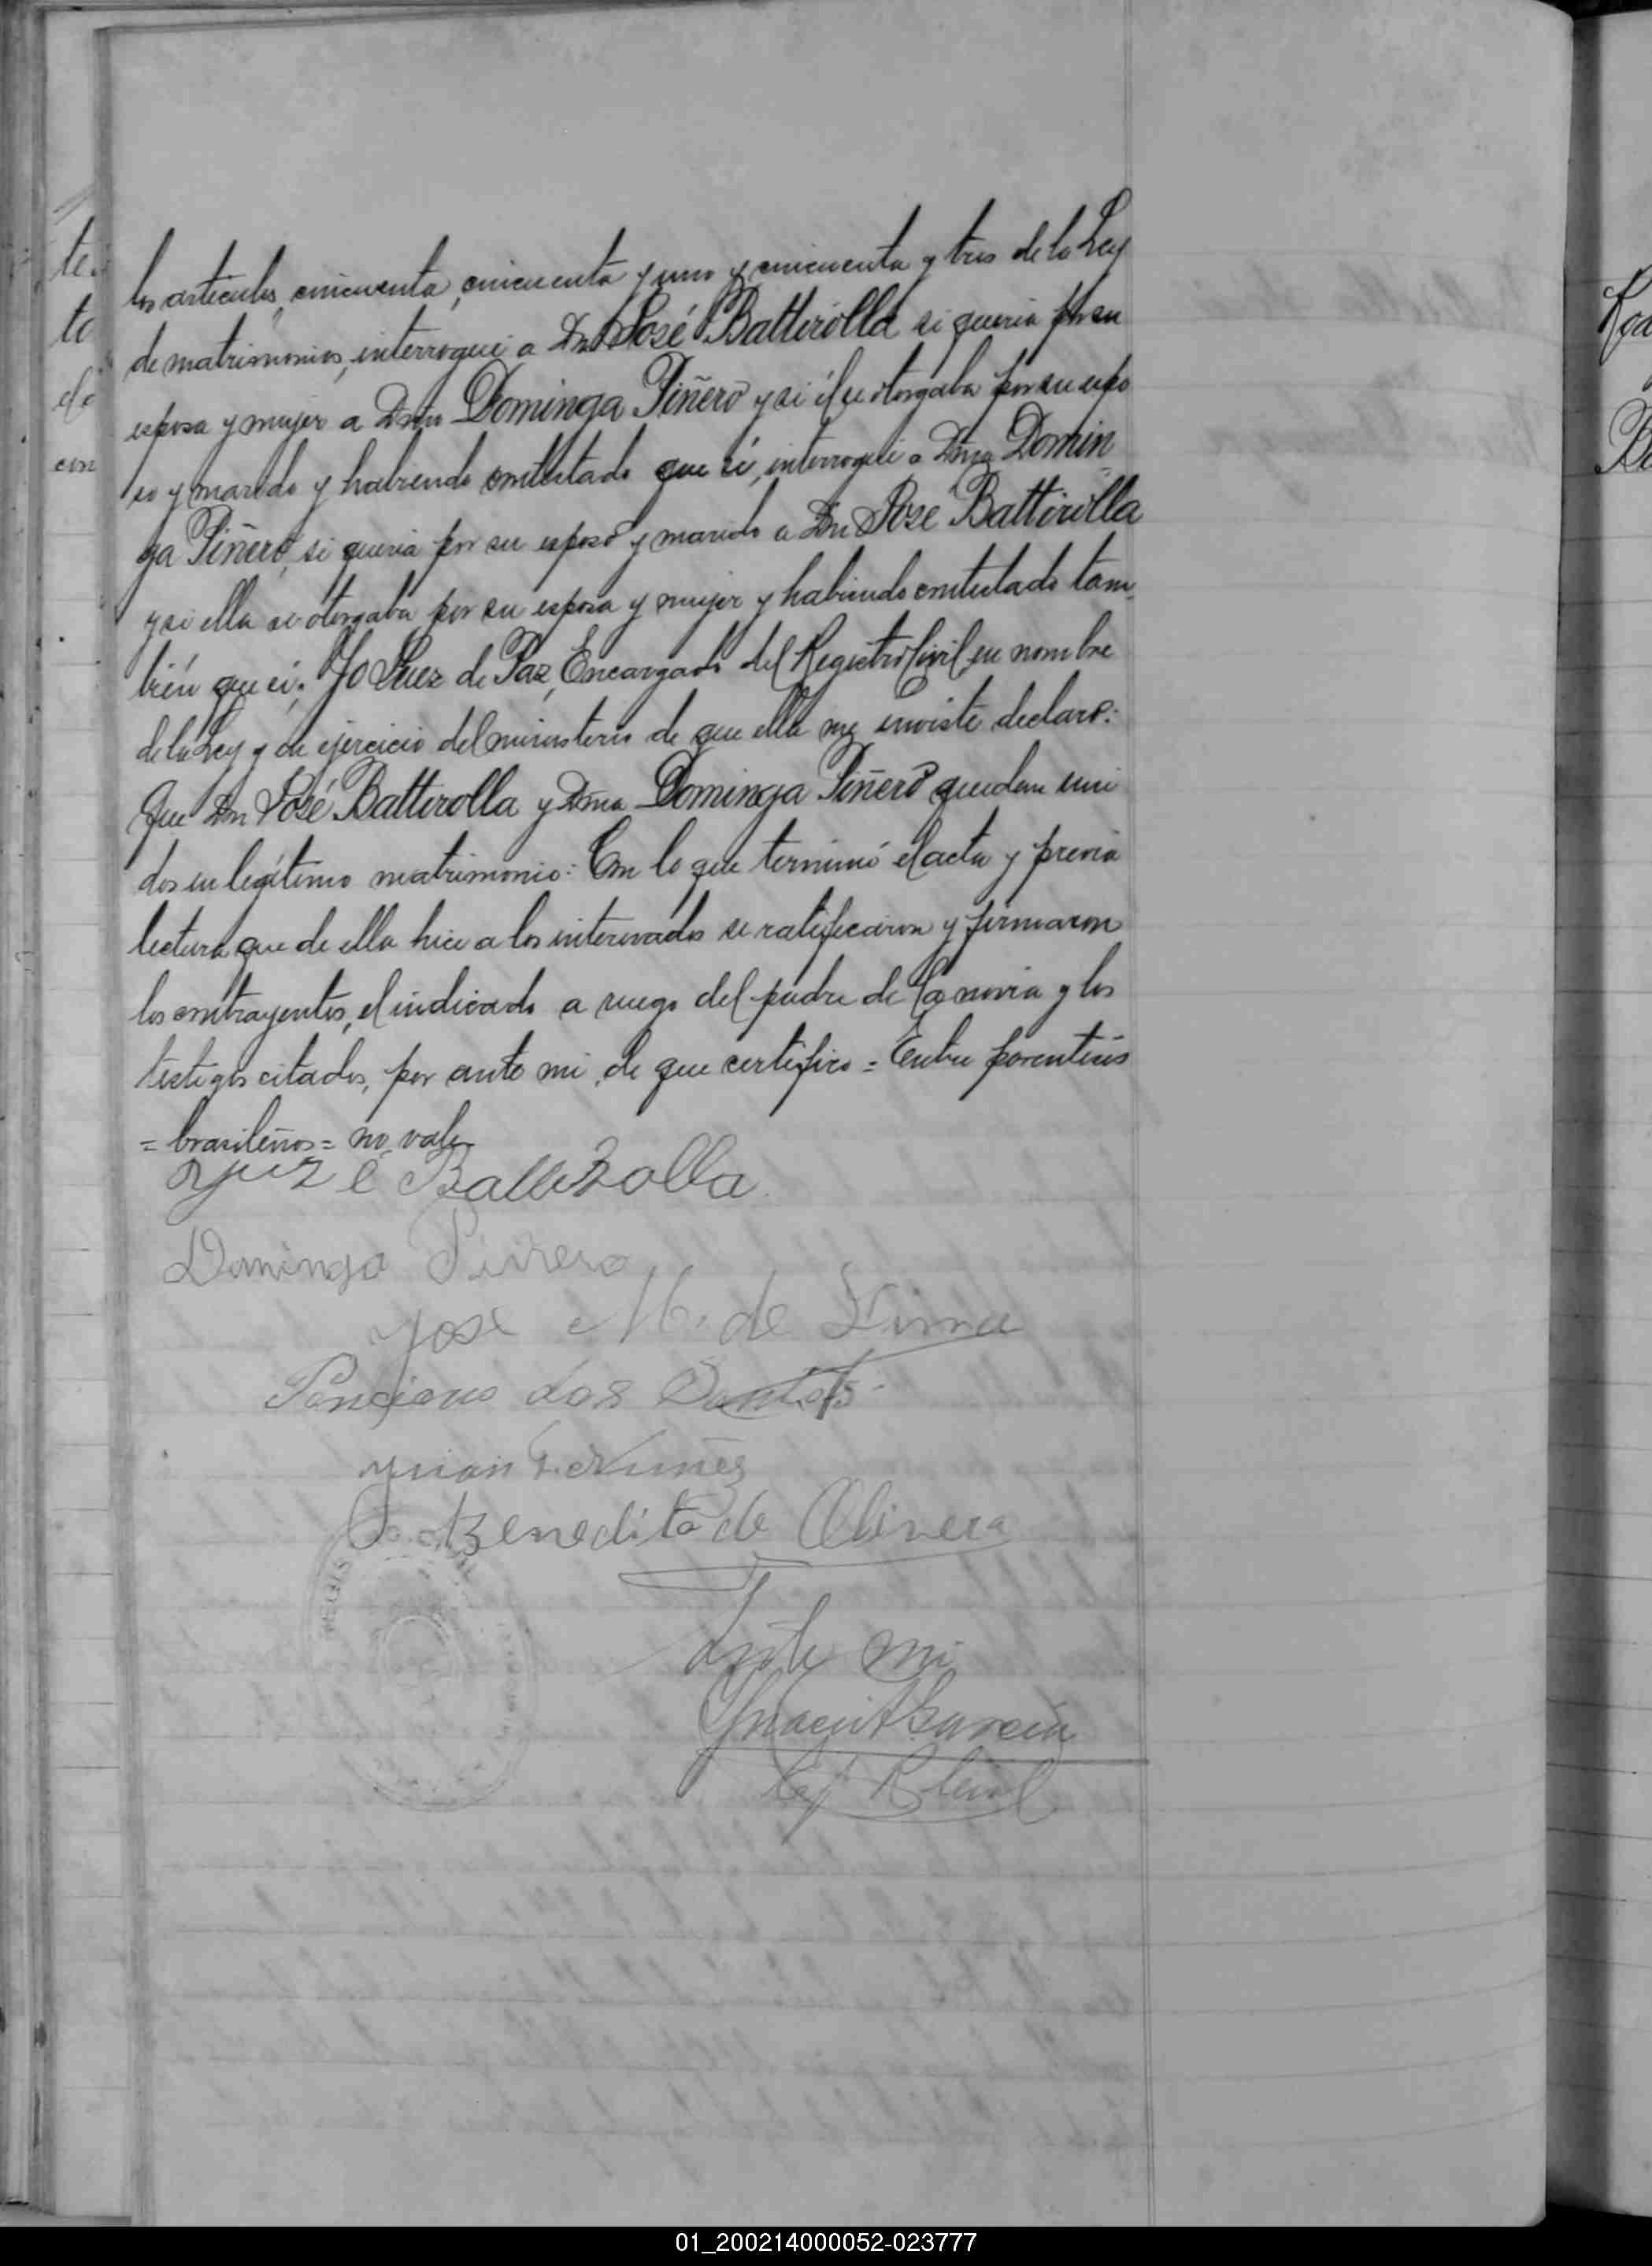 los artículos, cincuenta, cincuenta y uno y cincuenta y tres de la Ley
de matrimonios, interrogué a Dn José Battirolla si queria por su
esposa y mujer a Dña Dominga Piñero y si él se otorgaba por su espo
so y marido y habiendo contestado que sí, interrogué a Dña Domin
ga Piñero, si queria por su esposo y marido a Dn José Battirolla
y si ella se otorgaba por su esposa y mujer y habiendo contestado tam
bién que sí; Yo Juez de Paz, Encargado del Registro Civil en nombre
de la Ley y en ejercicio del ministerio de que ella me inviste declaro:
Que Dn José Battirolla y Dña Dominga Piñero quedan uni
dos en legítimo matrimonio: Con lo que terminó el acta y previa
lectura que de ella hice a los interesados se ratificaron y firmaron
los contrayentes, el indicado a ruego del padre de la novia y los
testigos citados, por ante mi, de que certifico = Entre parentesis
= brasileños = no vale
José Battirolla
Dominga Piñero
José M. de Lima
Ponciano dos Santos
Juan Nuñez
Benedito de Olivera
Ante mi
Ygnacio García
te
to
do
con
01_200214000052-023777